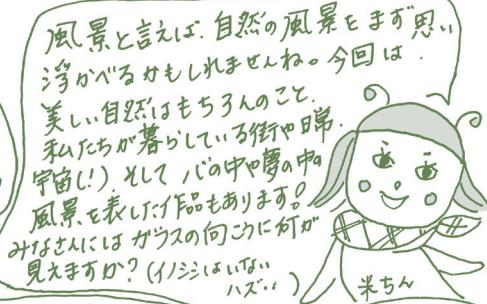 風景と言えば、自然の風景をまず思い
浮かべるかもしれませんね。今回は、
美しい自然はもちろんのこと、
私たちが暮らしている街や日常、
宇宙(!)、そして 心の中や夢の中の
風景を表した作品もあります！
みなさんにはガラスの向こうに何が
見えますか？(イノシシはいない
ハズ‥)
米ちん